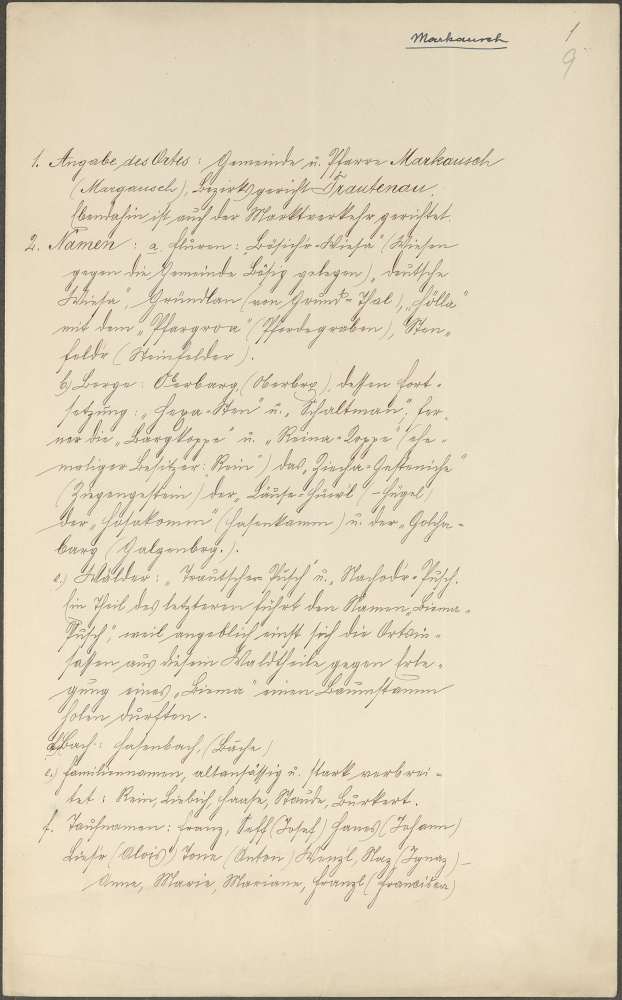 Markausch
1
9
1. Angabe des Ortes: Gemeinde u. Pfarre Markausch
(Margausch), Bezirksgericht Trautenau.
Ebendahin ist auch der Marktverkehr gerichtet.
2. Namen: a. Fluren: „Bösich'r-Wiesa" (Wiesen
gegen die Gemeinde Bösig gelegen), „deutsche
Wiesa", Gründlan (von Grund = Thal), „Hölla"
mit dem „Pfargroa" (Pferdegraben), Sten=
feldr (Steinfelder).
b) Berge: Oerbarg (Oerbrg), dessen Fort=
setzung: „Hexa-Sten" u. „Schaltman", fer=
ner die „Bargkoppe" u. „Reina-Koppe" (ehe=
maliger Besitzer: „Rein") das „Ziecha-Gesteniche"
(Ziegengestein) der „Läuse-Hüwl" (-Hügel)
der „Hosakomm" (Hasenkamm) u. der „Golcha-
barg (Galgenbrg.).
c.) Wälder: „Trautscher Pusch" u. „Nachodr-Pusch.
Ein Theil des letzteren führt den Namen „Biema-
Pusch", weil angeblich einst sich die Ortsin=
sassen aus diesem Waldtheile gegen Erle=
gung eines „Biema" einen Baumstamm
holen durften.
d) Bach: Hasenbach, (Bäche)
e.) Familiennamen, altansässig u. stark verbrei=
tet: Rein, Liebich, Haase, Staude, Burkert.
f. Taufnamen: Franz, Seff (Josef) Hans (Johann)
Liesr (Alois) Tone (Anton) Wenzl, Naz (Ignaz) –
Anne, Marie, Mariane, Franzl (Franziska)